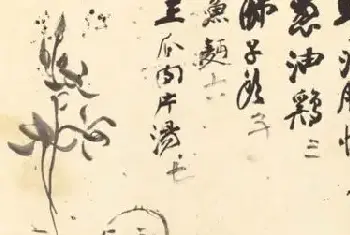 葱油鷄三
獅子頭
魚麵六
王瓜肉片湯七